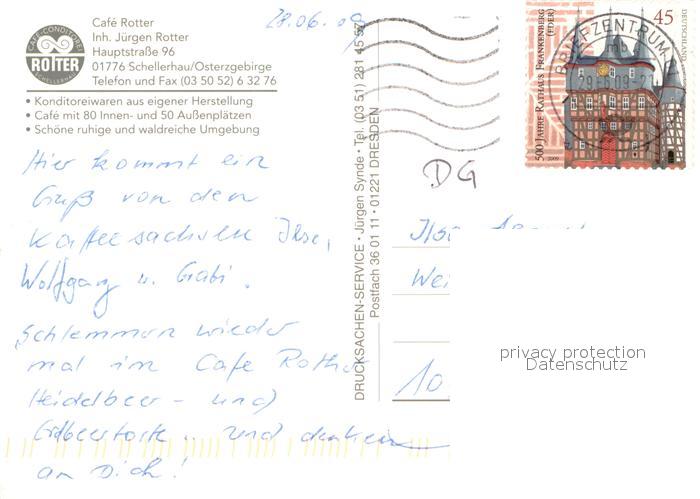 Café Rotter
Inh. Jürgen Rotter
Hauptstraße 96
01776 Schellerhau/Osterzgebirge
Telefon und Fax (03 50 52) 6 32 76
CAFE-CONDITOREI
ROTTER
SCHELLERHAU
• Konditoreiwaren aus eigener Herstellung
• Café mit 80 Innen- und 50 Außenplätzen
• Schöne ruhige und waldreiche Umgebung
28.06.09
Hier kommt ein
Gruß von den
Kaffeesachsen Ilse,
Wolfgang u. Gabi.
Schlemmen wieder
mal im Cafe Rotter
Heidelbeer- und
Erdbeertorte .. und denken
an Dich!
DRUCKSACHEN-SERVICE • Jürgen Synde • Tel. (03 51) 281 45 57
Postfach 36 01 11 • 01221 DRESDEN
DG
500 JAHRE RATHAUS FRANKENBERG
(EDER)
45
DEUTSCHLAND
2009
BRIEFZENTRUM
Wei
10
privacy protection
Datenschutz